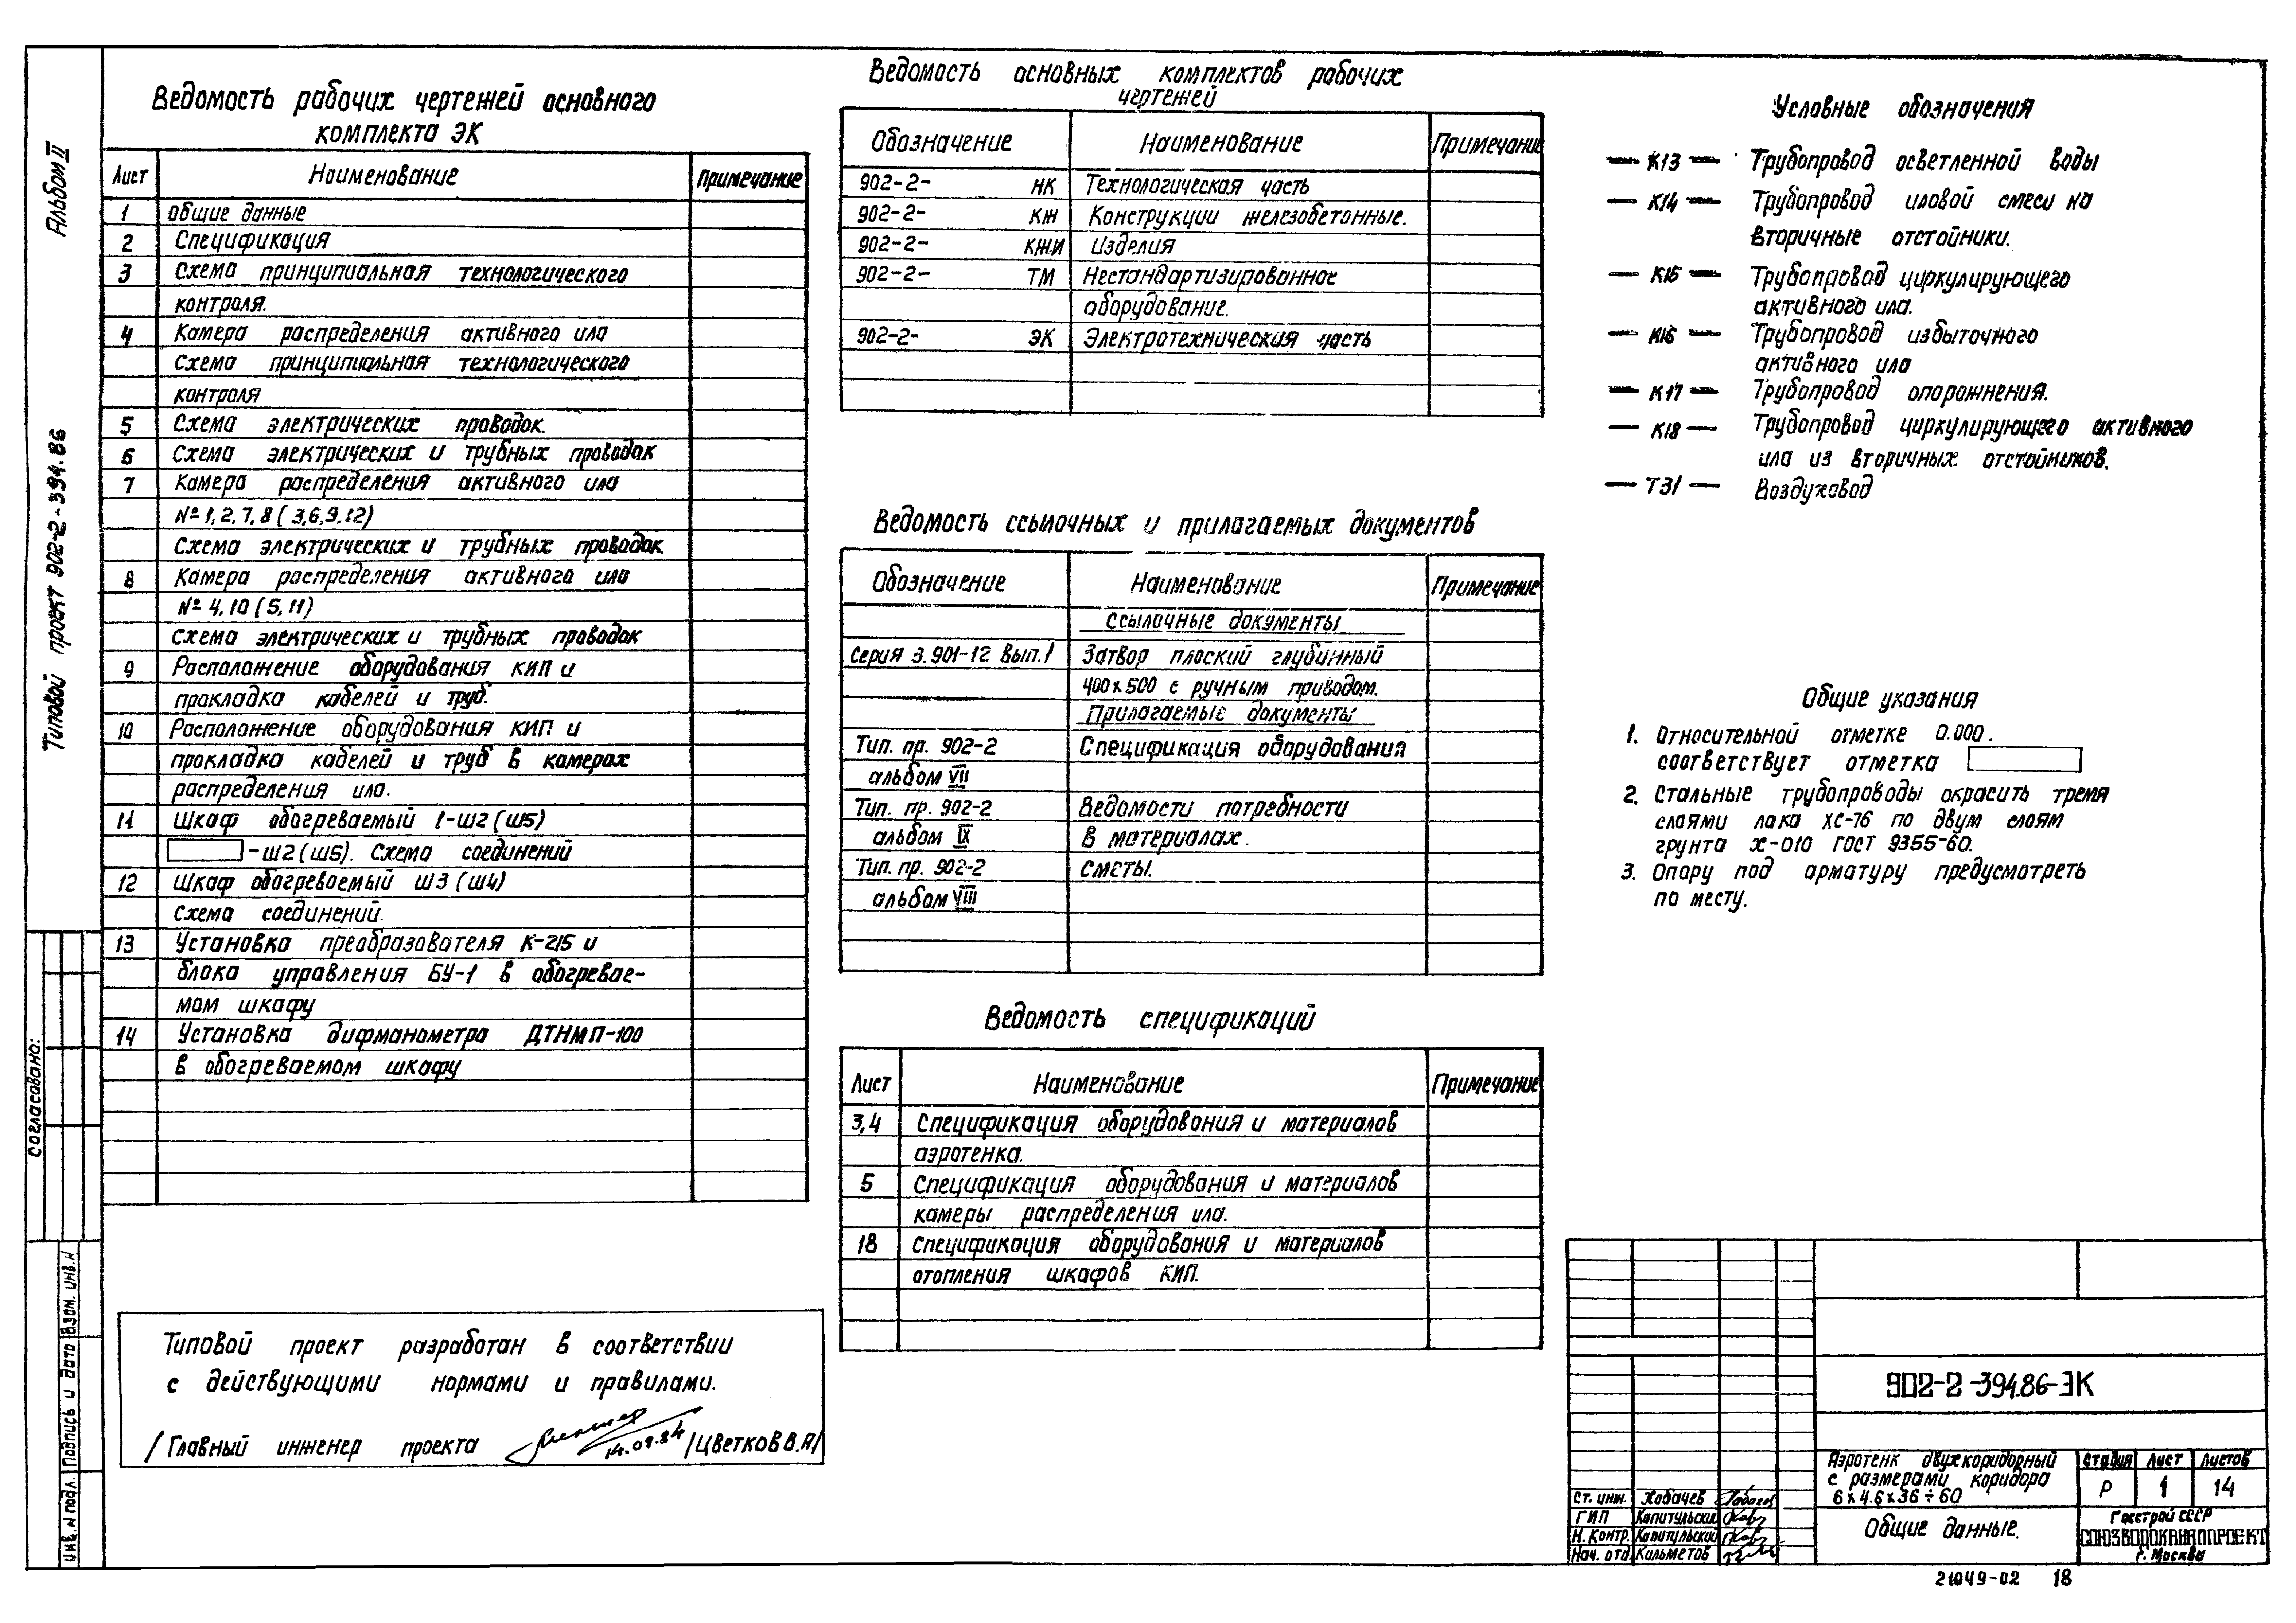 Альбом II
Типовой проект 902-2-394.86
Согласовано:
Взам. инв.N
Подпись и дата
Инв.N подл.
Ведомость рабочих чертежей основного
комплекта ЭК
Лист Наименование Примечание
1 Общие данные
2 Спецификация
3 Схема принципиальная технологического
контроля.
4 Камера распределения активного ила
Схема принципиальная технологического
контроля
5 Схема электрических проводок.
6 Схема электрических и трубных проводок
7 Камера распределения активного ила
№ 1, 2, 7, 8 (3,6,9,12)
Схема электрических и трубных проводок.
8 Камера распределения активного ила
№ 4, 10 (5, 11)
Схема электрических и трубных проводок
9 Расположение оборудования КИП и
прокладка кабелей и труб.
10 Расположение оборудования КИП и
прокладка кабелей и труб в камерах
распределения ила.
11 Шкаф обогреваемый 1-Ш2 (Ш5)
-Ш2 (Ш5). Схема соединений
12 Шкаф обогреваемый Ш3 (Ш4)
Схема соединений.
13 Установка преобразователя К-215 и
блока управления БУ-1 в обогревае-
мом шкафу
14 Установка дифманометра ДТНМП-100
в обогреваемом шкафу
Типовой проект разработан в соответствии
с действующими нормами и правилами.
/Главный инженер проекта 14.09.84 /Цветков В.А/
Ведомость основных комплектов рабочих
чертежей
Обозначение Наименование Примечание
902-2- НК Технологическая часть
902-2- КЖ Конструкции железобетонные.
902-2- КЖИ Изделия
902-2- ТМ Нестандартизированное
оборудование.
902-2- ЭК Электротехническая часть
Ведомость ссылочных и прилагаемых документов
Обозначение Наименование Примечание
Ссылочные документы
Серия 3.901-12 Вып.1 Затвор плоский глубинный
400х500 с ручным приводом.
Прилагаемые документы
Тип. пр. 902-2 Спецификация оборудования
альбом VII
Тип. пр. 902-2 Ведомости потребности
альбом IX в материалах.
Тип. пр. 902-2 Сметы.
альбом VIII
Ведомость спецификаций
Лист Наименование Примечание
3,4 Спецификация оборудования и материалов
аэротенка.
5 Спецификация оборудования и материалов
камеры распределения ила.
18 Спецификация оборудования и материалов
отопления шкафов КИП.
Условные обозначения
— К13 — Трубопровод осветленной воды
— К14 — Трубопровод иловой смеси на
вторичные отстойники.
— К15 — Трубопровод циркулирующего
активного ила.
— К16 — Трубопровод избыточного
активного ила
— К17 — Трубопровод опорожнения.
— К18 — Трубопровод циркулирующего активного
ила из вторичных отстойников.
— Т31 — Воздуховод
Общие указания
1. Относительной отметке 0.000.
соответствует отметка
2. Стальные трубопроводы окрасить тремя
слоями лака ХС-76 по двум слоям
грунта Х-010 ГОСТ 9355-60.
3. Опору под арматуру предусмотреть
по месту.
902-2-394.86-ЭК
Аэротенк двухкоридорный
с размерами коридора
6х4.6х36÷60
Стадия Лист Листов
Р 1 14
Общие данные.
Госстрой СССР
СОЮЗВОДОКАНАЛПРОЕКТ
г. Москва
Ст. инж. Хобачев
ГИП Капитульский
Н. Контр. Капитульский
Нач. отд. Кильметов
21049-02 18